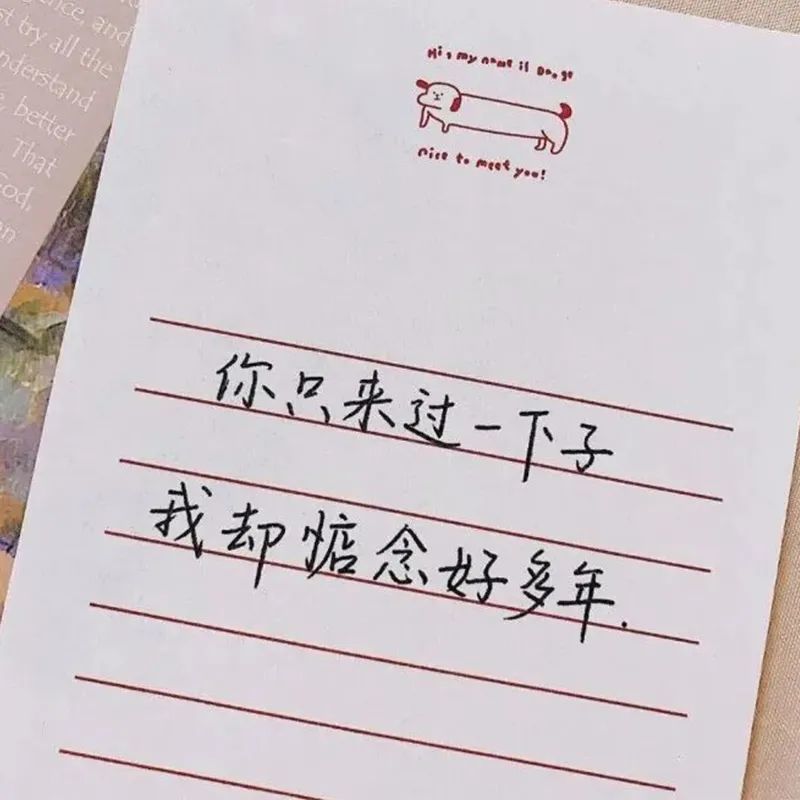 ence, and
st try all the
nderstand
, better
That
God,
an
Hi, my name is Doge
nice to meet you!
你只来过一下子
我却惦念好多年.